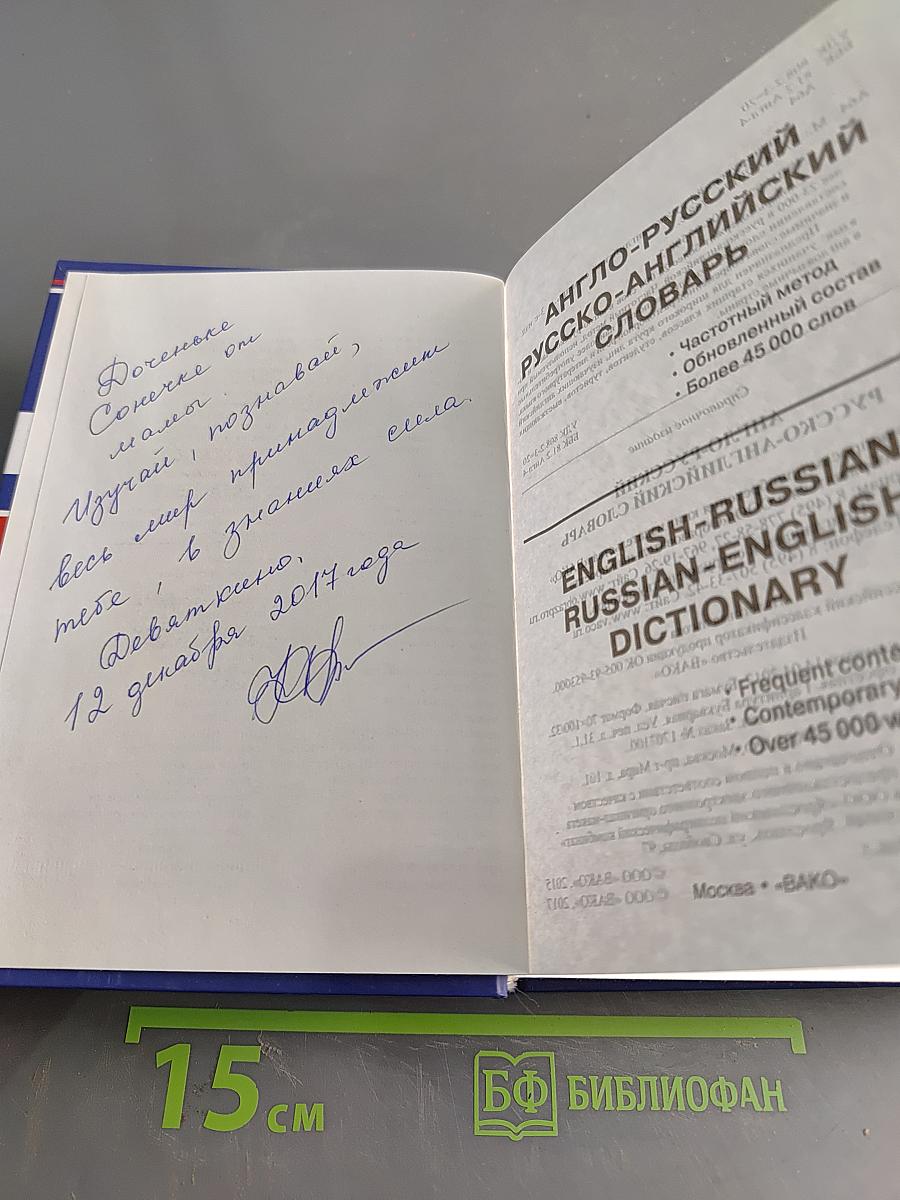 Доченьке
Сонечке от
мамы.
Изучай, познавай,
весь мир принадлежит
тебе, в знаниях сила.
Девяткино,
12 декабря 2017 года
АНГЛО-РУССКИЙ
РУССКО-АНГЛИЙСКИЙ
СЛОВАРЬ
• Частотный метод
• Обновленный состав
• Более 45 000 слов
ENGLISH-RUSSIAN
RUSSIAN-ENGLISH
DICTIONARY
• Frequent conte
• Contemporary
• Over 45 000 w
Москва • «ВАКО»
15 см
БФ БИБЛИОФАН